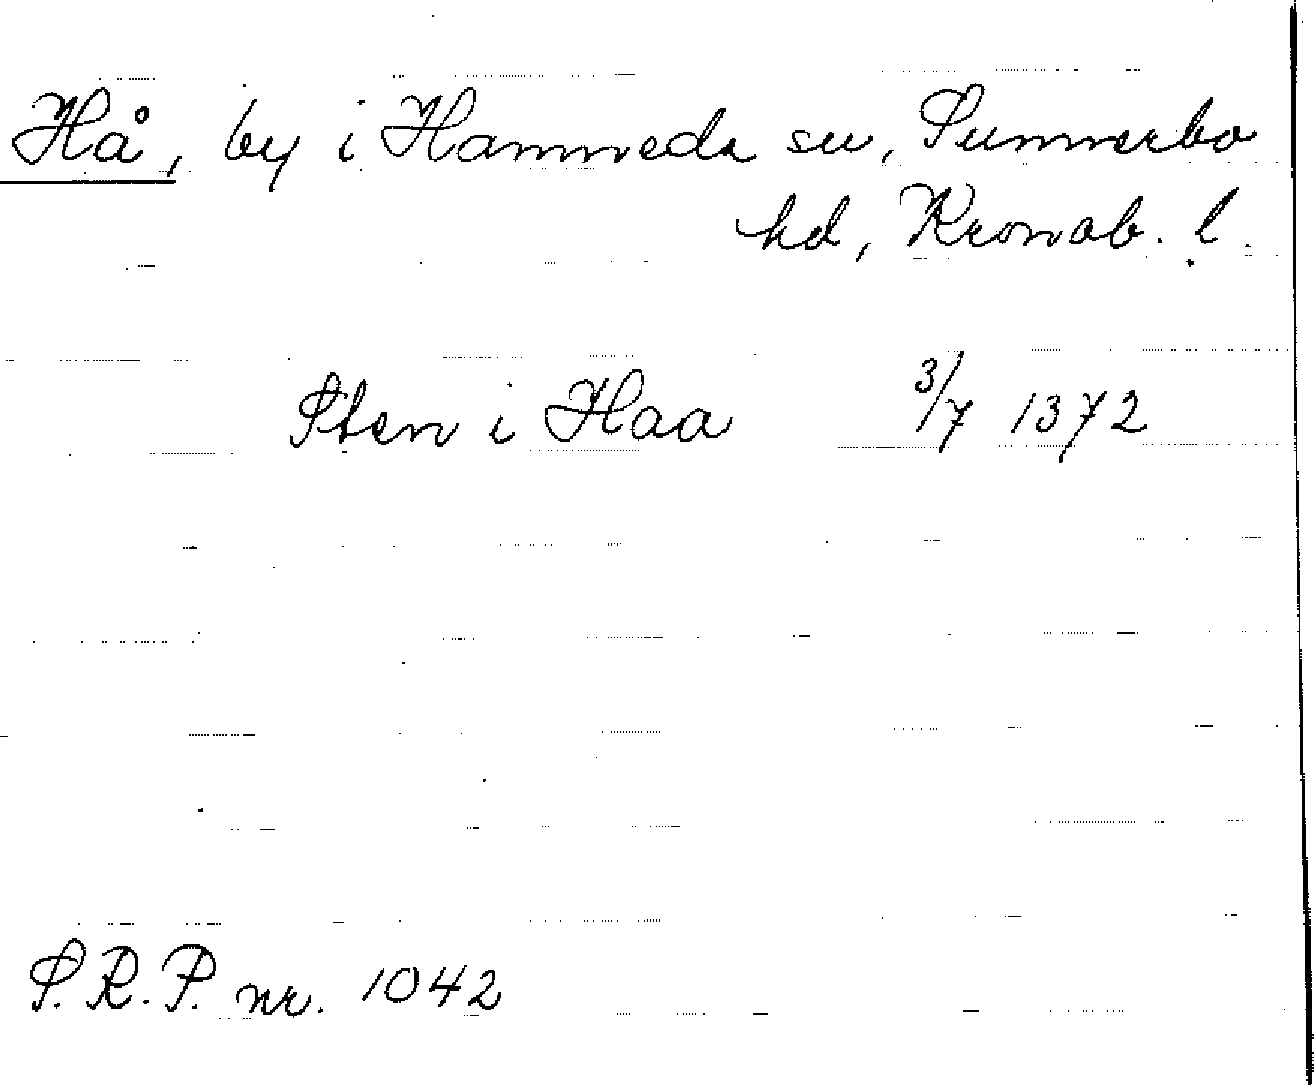 Hå, by i Hamneda sn, Sunnerbo
hd, Kronob. l.
Sten i Haa 3/7 1372
S.R.P. nr. 1042